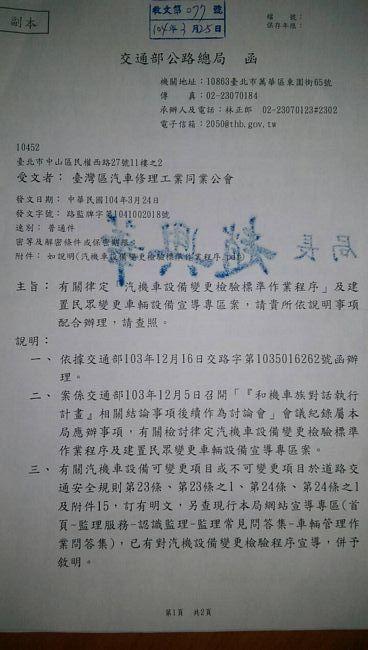 副本
收文第077號
104年3月25日
檔　號：
保存年限：
交通部公路總局　函
機關地址：10863臺北市萬華區東園街65號
傳　　真：02-23070184
承辦人及電話：林正郎　02-23070123#2302
電子信箱：2050@thb.gov.tw
10452
臺北市中山區民權西路27號11樓之2
受文者：臺灣區汽車修理工業同業公會
發文日期：中華民國104年3月24日
發文字號：路監牌字第1041002018號
速別：普通件
密等及解密條件或保密期限：
附件：如說明(汽機車設備變更檢驗標準作業程序.pdf)
局長 趙興華
主旨：有關律定「汽機車設備變更檢驗標準作業程序」及建
置民眾變更車輛設備宣導專區案，請貴所依說明事項
配合辦理，請查照。
說明：
一、依據交通部103年12月16日交路字第1035016262號函辦
理。
二、案係交通部103年12月5日召開「『和機車族對話執行
計畫』相關結論事項後續作為討論會」會議紀錄屬本
局應辦事項，有關檢討律定汽機車設備變更檢驗標準
作業程序及建置民眾車輛設備變更宣導專區案。
三、有關汽機車設備可變更項目或不可變更項目於道路交
通安全規則第23條、第23條之1、第24條、第24條之1
及附件15，訂有明文，另查現行本局網站宣導專區(首
頁-監理服務-認識監理-監理常見問答集-車輛管理作
業問答集)，已有對汽機設備變更檢驗程序宣導，併予
敘明。
第1頁　共2頁